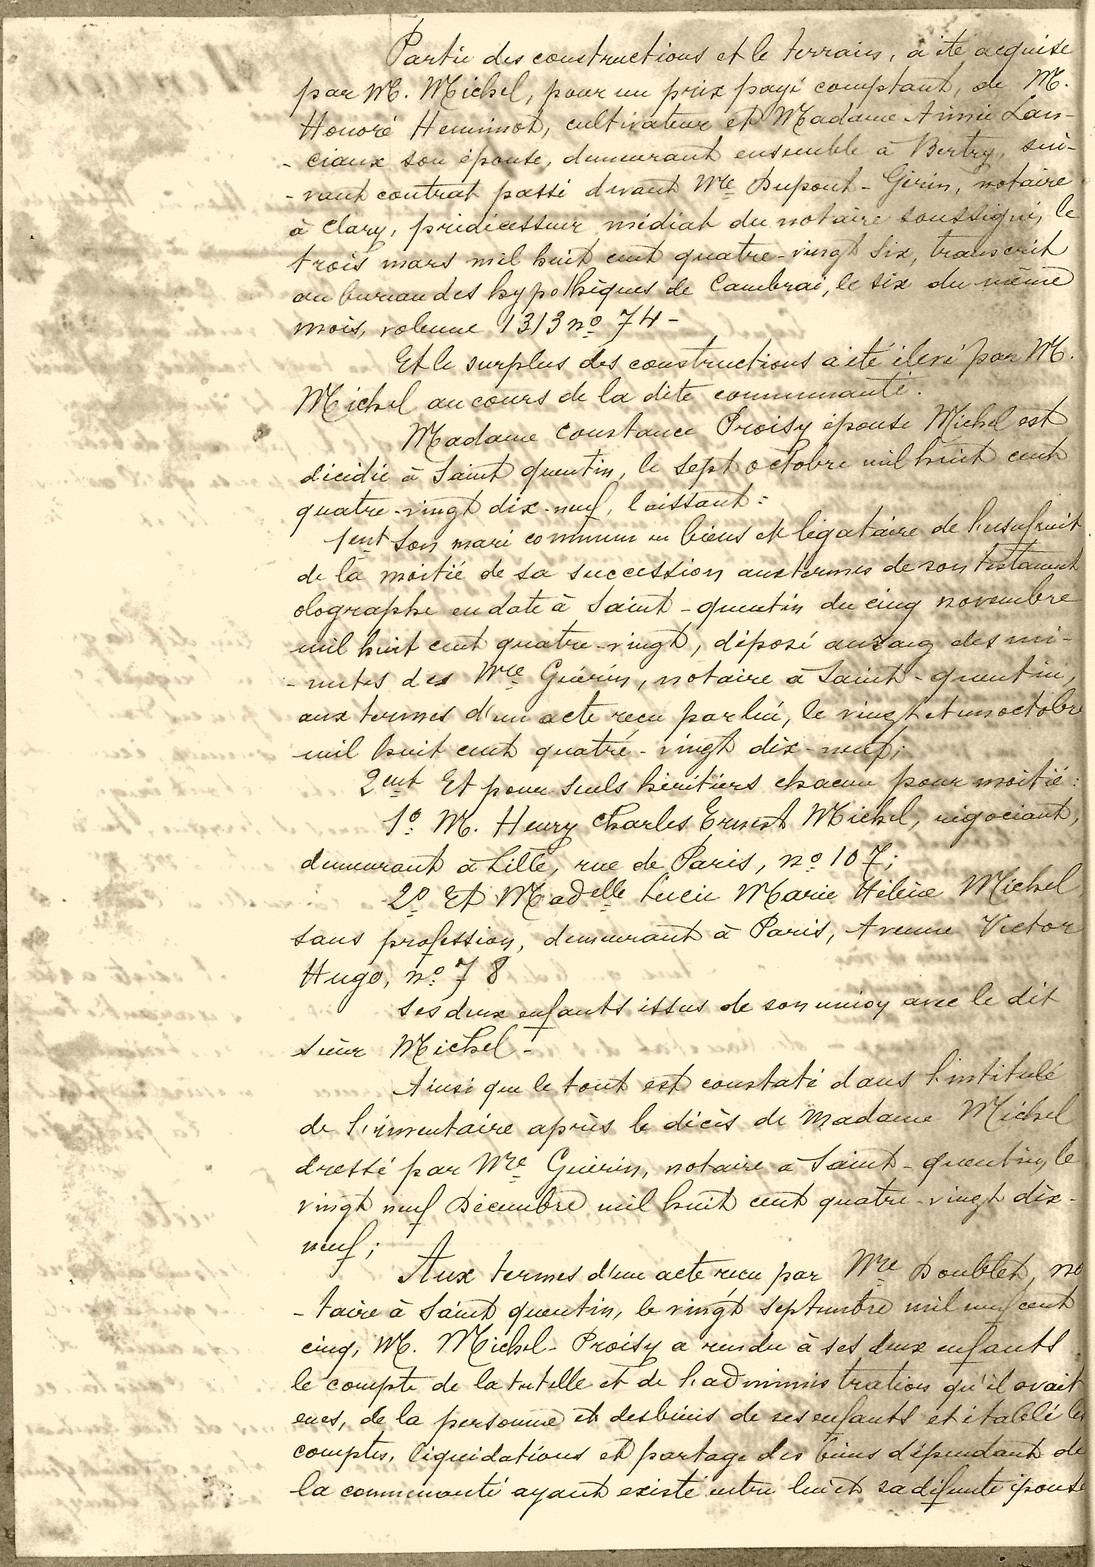 Partie des constructions et le terrain, a été acquise
par M. Michel, pour un prix payé comptant, de M.
Honoré Heminot, cultivateur et Madame Aimée Lan-
- ciaux son épouse, demeurant ensemble à Bertry, sui-
- vant contrat passé devant Mre Dupont - Gérin, notaire
à Clary, prédécesseur médiat du notaire soussigné, le
trois mars mil huit cent quatre-vingt six, transcrit
au bureau des hypothèques de Cambrai, le six du même
mois, volume 1313 no 74 -
Et le surplus des constructions a été élevé par M.
Michel au cours de la dite communauté.
Madame Constance Proisy épouse Michel est
décédée à Saint quentin, le sept octobre mil huit cent
quatre-vingt dix-neuf, laissant :
1ent Son mari commun en biens et légataire de l'usufruit
de la moitié de sa succession aux termes de son testament
olographe en date à Saint - quentin du cinq novembre
mil huit cent quatre-vingt, déposé au rang des mi-
- nutes des Mre Guérin, notaire à Saint - quentin,
aux termes d'un acte reçu par lui, le vingt et un octobre
mil huit cent quatre - vingt dix - neuf;
2ent Et pour seuls héritiers chacun pour moitié :
1o M. Henry Charles Ernest Michel, négociant,
demeurant à Lille, rue de Paris, no 107;
2o Et Madelle Lucie Marie Hélène Michel,
sans profession, demeurant à Paris, Avenue Victor
Hugo, no 78
Ses deux enfants issus de son union avec le dit
sieur Michel -
Ainsi que le tout est constaté dans l'intitulé
de l'inventaire après le décès de Madame Michel
dressé par Mre Guérin, notaire à Saint - quentin, le
vingt neuf Décembre mil huit cent quatre - vingt dix -
neuf ;
Aux termes d'un acte reçu par Mre Doublet, no
- taire à Saint quentin, le vingt septembre mil neuf cent
cinq, M. Michel - Proisy a rendu à ses deux enfants
le compte de la tutelle et de l'administration qu'il avait
eues, de la personne et des biens de ses enfants et établi les
comptes, liquidations et partage des biens dépendant de
la communauté ayant existé entre lui et sa défunte épouse